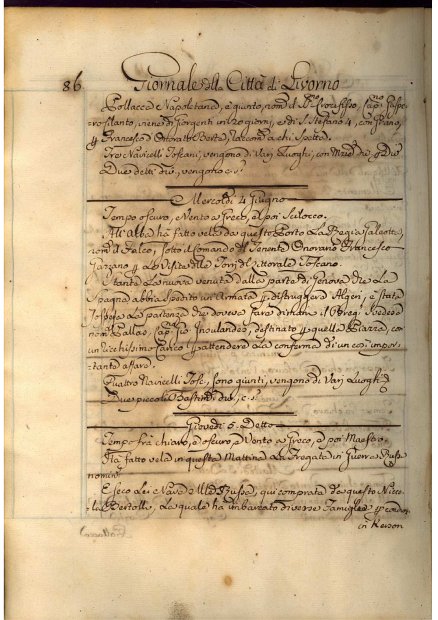 86. Giornale della Città di Livorno
Pollacca Napoletana, è giunto, nom. il SS.mo Crocifisso, Cap.no
viene di Gorgenti in 20 giorni, e di S. Stefano 4, con Grano,
Francesco d'Onorato Berte, Raccom.a a chi Spetta.
Tre Navicelli Toscani, vengono di Vari Luoghi, con
Due detti
Mercoldì 4 Giugno
Tempo oscuro, e Vento a Greco, e poi Scilocco.
All'alba ha fatto vela da questo Porto La Regia Galeotta,
nom. il Falco, sotto il Comando di Tenente Onorano Francesco
Garzano La Visita delle Torri del Littorale Toscano.
Stante La nuova venuta dalla parte di Genova che La
Spagna abbia Spedito un'Armata distruggere Algeri, è stata
sospesa La partenza che doveva fare dimani il Obreg. Svedese
nom. Pallas, Cap. Gio destinato quella Barra, con
un ricchissimo Carico attendere La Conferma di un così impor-
tante affare.
Quattro Navicelli Tosc. sono giunti, vengono di Vari Luoghi
Due piccoli Bastim.
Giovedì 5. Detto
Tempo frà chiaro, e oscuro, e Vento a Greco, e poi Maestro.
Ha fatto vela in questa Mattina La Fregata in Guerra Russa
nomin.
E seco Lei è Nave Russa, qui comprata da questo Nicco-
la Bertolli, La quale ha imbarcato diverse Famiglie